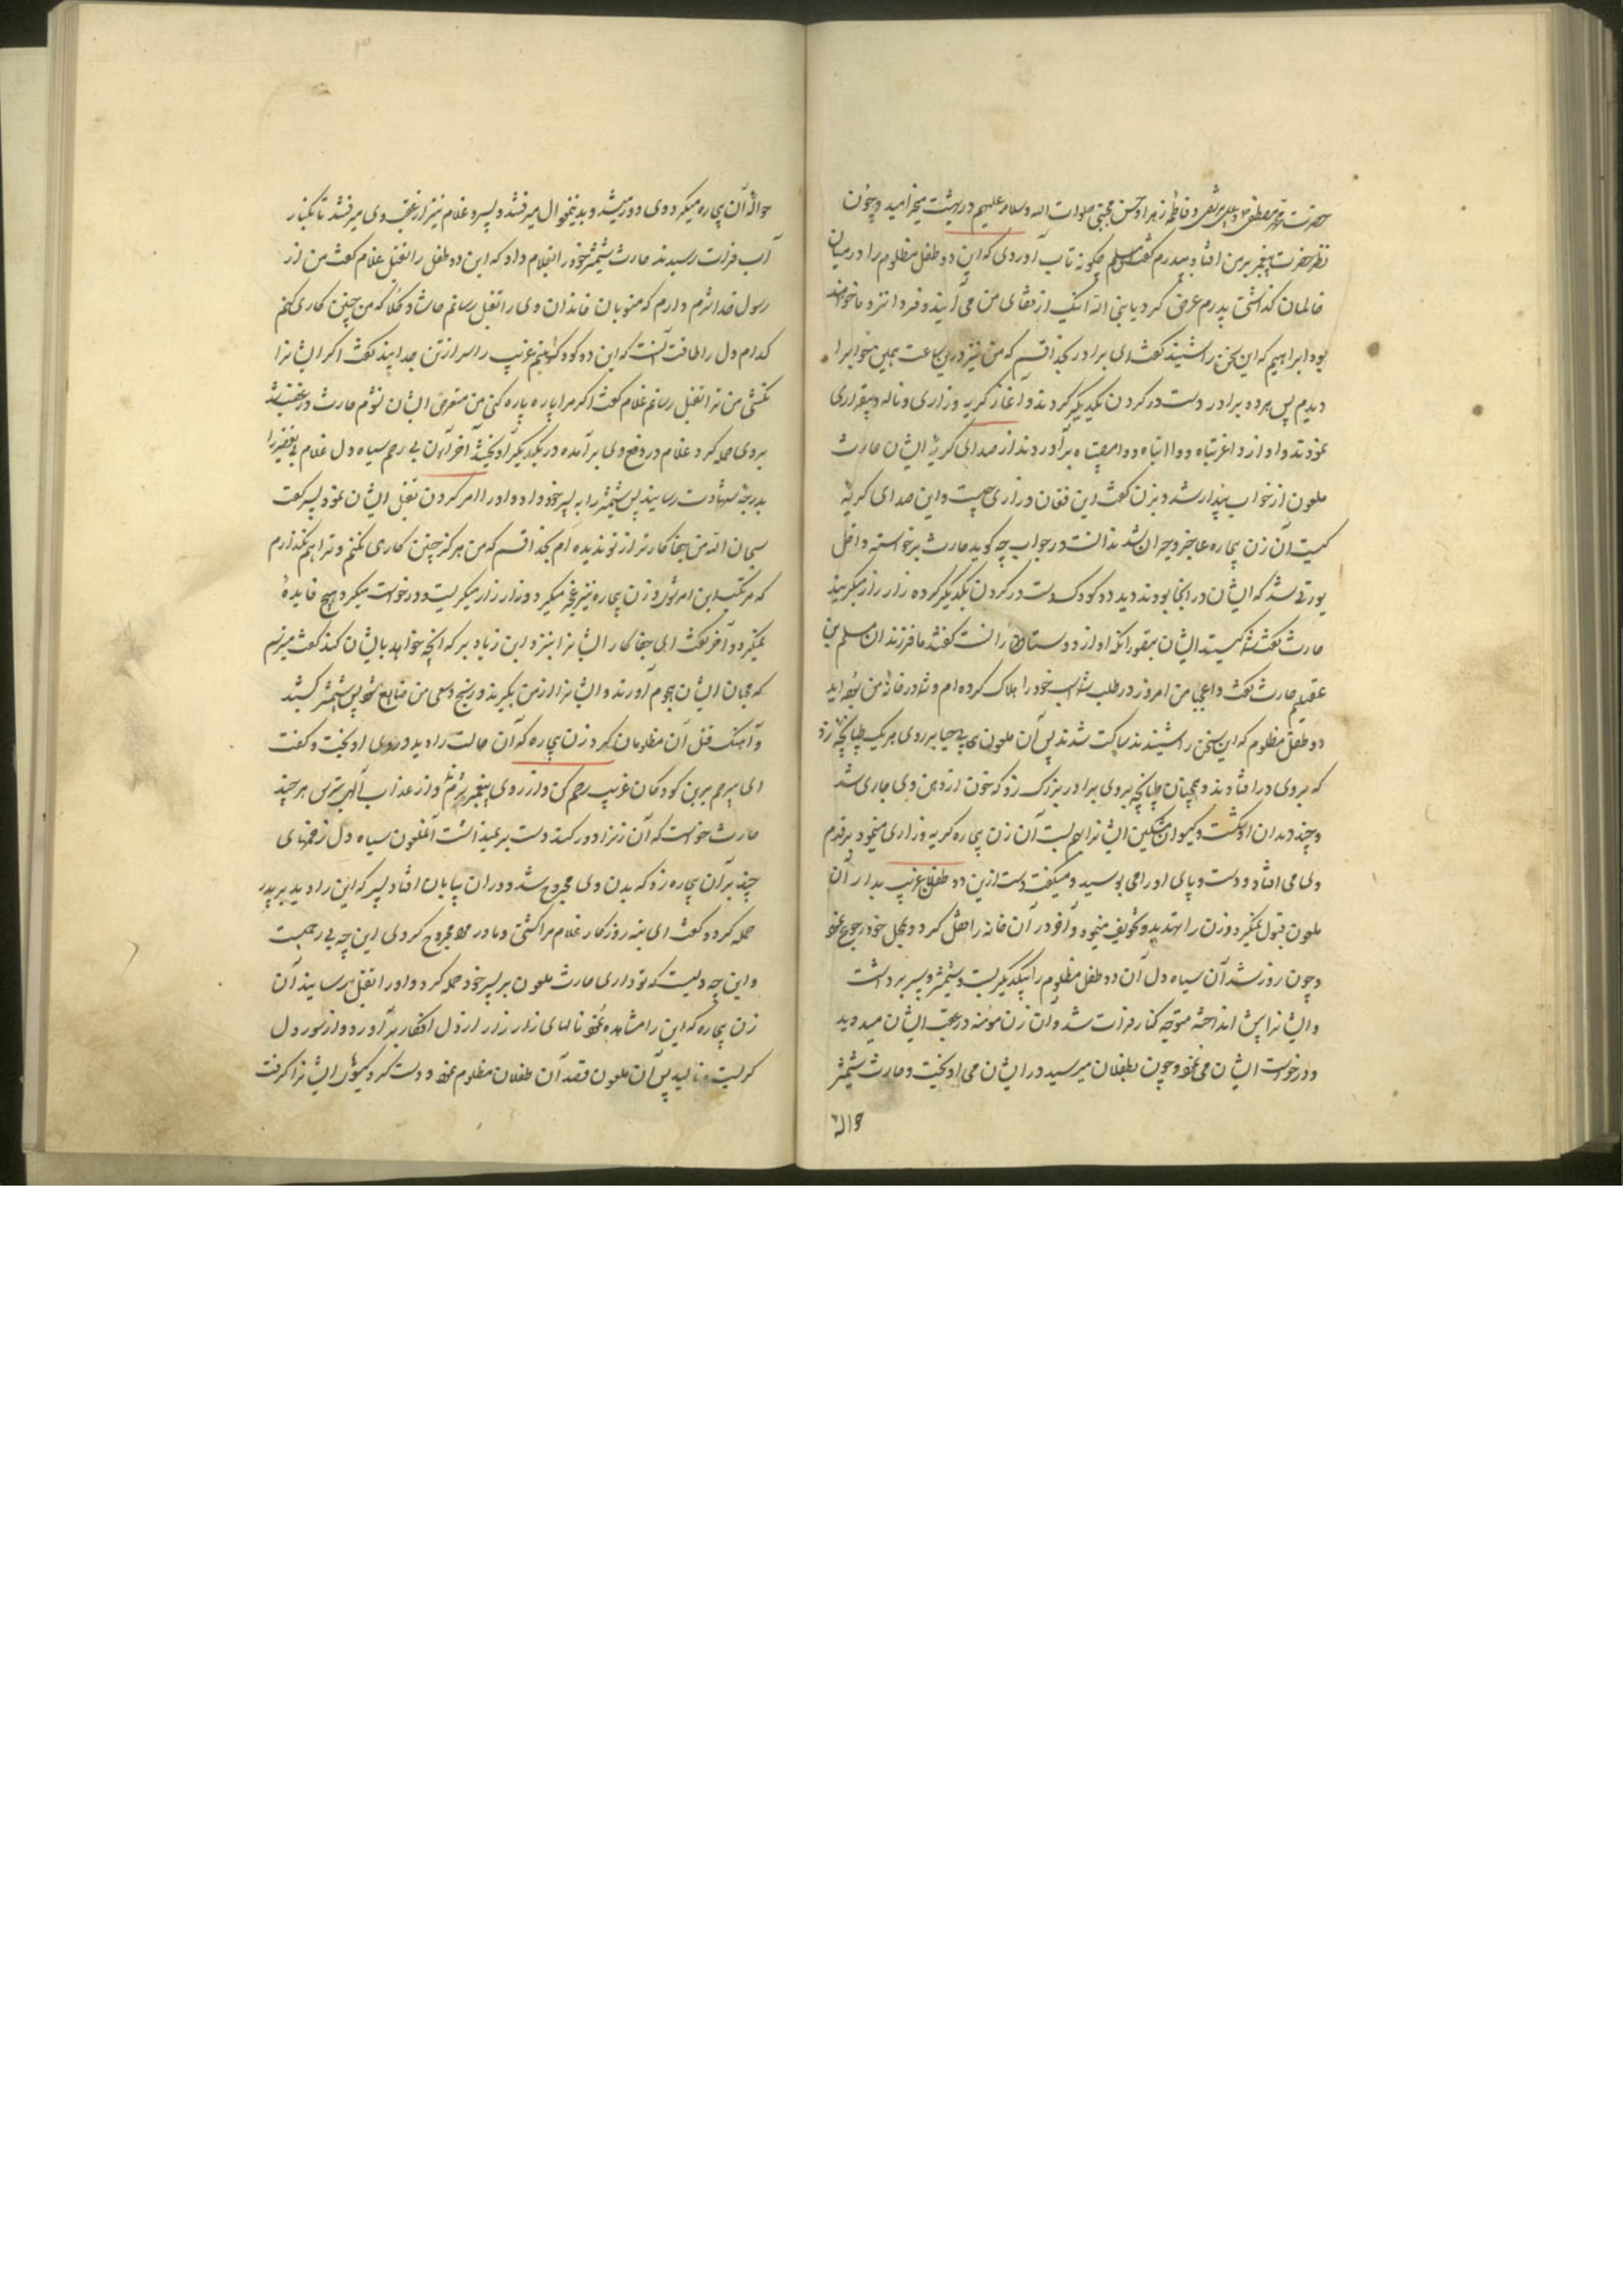 حضرت محمد مصطفی و علی مرتضی و فاطمه زهرا و حسن مجتبی صلوات الله و سلامه علیهم در بهشت میخرامید و چون
نظر حضرت پیغمبر بر من افتاد بپدرم گفت ای مسلم چکونه تاب آوردی که این دو طفل مظلوم را در میان
ظالمان کذاشتی پدرم عرض کرد یا نبی الله اینک از قفای من می آیند و فردا نزد ما خواهند
بود ابراهیم که این سخن را شنید گفت ای برادر بخدا قسم که من نیز درین ساعت همین خواب را
دیدم پس هر دو برادر دست در کردن یکدیگر کردند و آغاز کریه و زاری و ناله و بیقراری
نمودند و آواز وا غربتاه و وا ابتاه و وا مصیبتاه برآوردند از صدای کریهٔ ایشان حارث
ملعون از خواب بیدار شد و بزن گفت این فغان و زاری چیست و این صدای کریهٔ
کیست آن زن بیچاره عاجز و حیران شد ندانست در جواب چه کوید حارث برخواسته داخل
یورتی شد که ایشان در انجا بودند دید دو کودک دست در کردن یکدیگر کرده زار زار میکریند
حارث گفت شما کیستید ایشان بتصور آنکه او از دوستانست گفتند ما فرزندان مسلم بن
عقیلیم حارث گفت وا عجبا من امروز در طلب شما اسب خود را هلاک کرده ام و شما در خانهٔ من بوده اید
دو طفل مظلوم که این سخن را شنیدند ساکت شدند پس آن ملعون بی حیا بر روی هر یک طپانچه زد
که بروی در افتادند و همچنان طپانچه بروی برادر بزرک زد که خون از دهن وی جاری شد
و چند دندان او شکست و کیسوان مشکین ایشانرا بهم بست آن زن بیچاره کریه و زاری مینمود بر قدم
وی می افتاد و دست و پای او را می بوسید و میکفت دست ازین دو طفل غریب بدار آن
ملعون قبول نمیکرد و زن را تهدید و تخویف مینمود و آخر در آن خانه را قفل کرد و بمحل خود رجوع نمود
و چون روز شد آن سیاه دل آن دو طفل مظلوم را بیکدیکر بست و شمشیر و سپر برداشت
و ایشانرا پیش انداخته متوجه کنار فرات شد و آن زن مؤمنه در عقب ایشان میدوید
و درخواست ایشان می نمود و چون بطفلان میرسید در ایشان می اویخت و حارث شمشیر
حواله
حوالهٔ آن بیچاره میکرد و وی دور میشد و بدینمنوال میرفتند و پسر و غلام نیز از عقب وی میرفتند تا بکنار
آب فرات رسیدند حارث شمشیر خود را بغلام داد که این دو طفل را بقتل غلام گفت من از
رسول خدا شرم دارم که منسوبان خاندان وی را بقتل رسانم حاشا و کلا که من چنین کاری کنم
کدام دل را طاقت آنست که این دو کودک یتیم غریب را سر از تن جدا بیند گفت اکر ایشانرا
نکشی من ترا بقتل رسانم غلام گفت اکر مرا پاره پاره کنی من متعرض ایشان نشوم حارث در غضب شد
بر وی حمله کرد غلام در دفع وی برآمده در یکدیگر آویختند آخر آن بی رحم سیاه دل غلام بی تقصیر را
بدرجه شهادت رسانید پس شمشیر را به پسر خود داد و او را امر کردن بقتل ایشان نمود پسر گفت
سبحان الله من جفاکارتر از تو ندیده ام بخدا قسم که من هرکز چنین کاری نکنم و ترا هم نگذارم
که مرتکب این امر شوی و زن بیچاره نیز ضجه میکرد و زار زار میکریست و درخواست میکرد و هیچ فایدهٔ
نمیکرد و آخر گفت ای جفاکار ایشانرا بنزد ابن زیاد بر که آنچه خواهد بایشان کند گفت میترسم
که محبان ایشان هجوم آورند و ایشانرا از من بگیرند و رنج و سعی من ضایع شود پس شمشیر کشید
و آهنک قتل آن مظلومان کرد زن بیچاره که آن حالت را دید در وی اویخت و گفت
ای بیرحم برین کودکان غریب رحم کن و از روی پیغمبر شرم و از عذاب الهی بترس هر چند
حارث خواست که آن زنرا دور کند دست بر نمیداشت آنملعون سیاه دل زخمهای
چند بر آن بیچاره زد که بدن وی مجروح شد و در آن بیابان افتاد پسر که این را دید بر پدر
حمله کرد و گفت ای تبه روزکار غلام مرا کشتی و مادر مرا مجروح کردی این چه بی رحمیست
و این چه دلیست که تو داری حارث ملعون بر پسر خود حمله کرد و او را بقتل رسانید آن
زن بیچاره که این را مشاهده نمود نالهای زار زار از دل افکار برآورد و از سوز دل
کریست و نالید پس آن ملعون قصد آن طفلان مظلوم نمود و دست کرد کیسوی ایشانرا کرفت